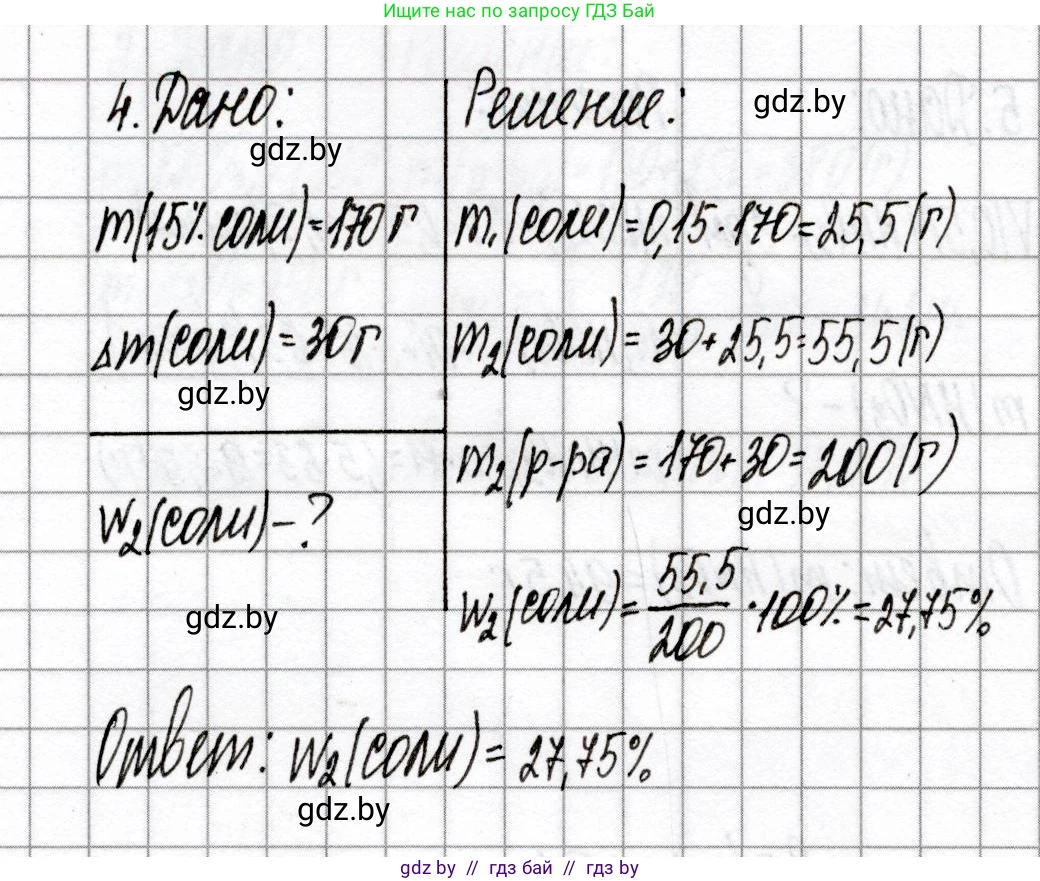 Ищите нас по запросу ГДЗ Бай
4. Дано:
gdz.by
m(15% соли)=170 г
Δm(соли)=30 г
gdz.by
w₂(соли)-?
gdz.by
Решение:
gdz.by
m₁(соли)=0,15·170=25,5(г)
m₂(соли)=30+25,5=55,5(г)
m₂(р-ра)=170+30=200(г)
gdz.by
w₂(соли)=55,5/200·100%=27,75%
Ответ: w₂(соли)=27,75%
gdz.by
gdz.by // гдз бай // gdz by